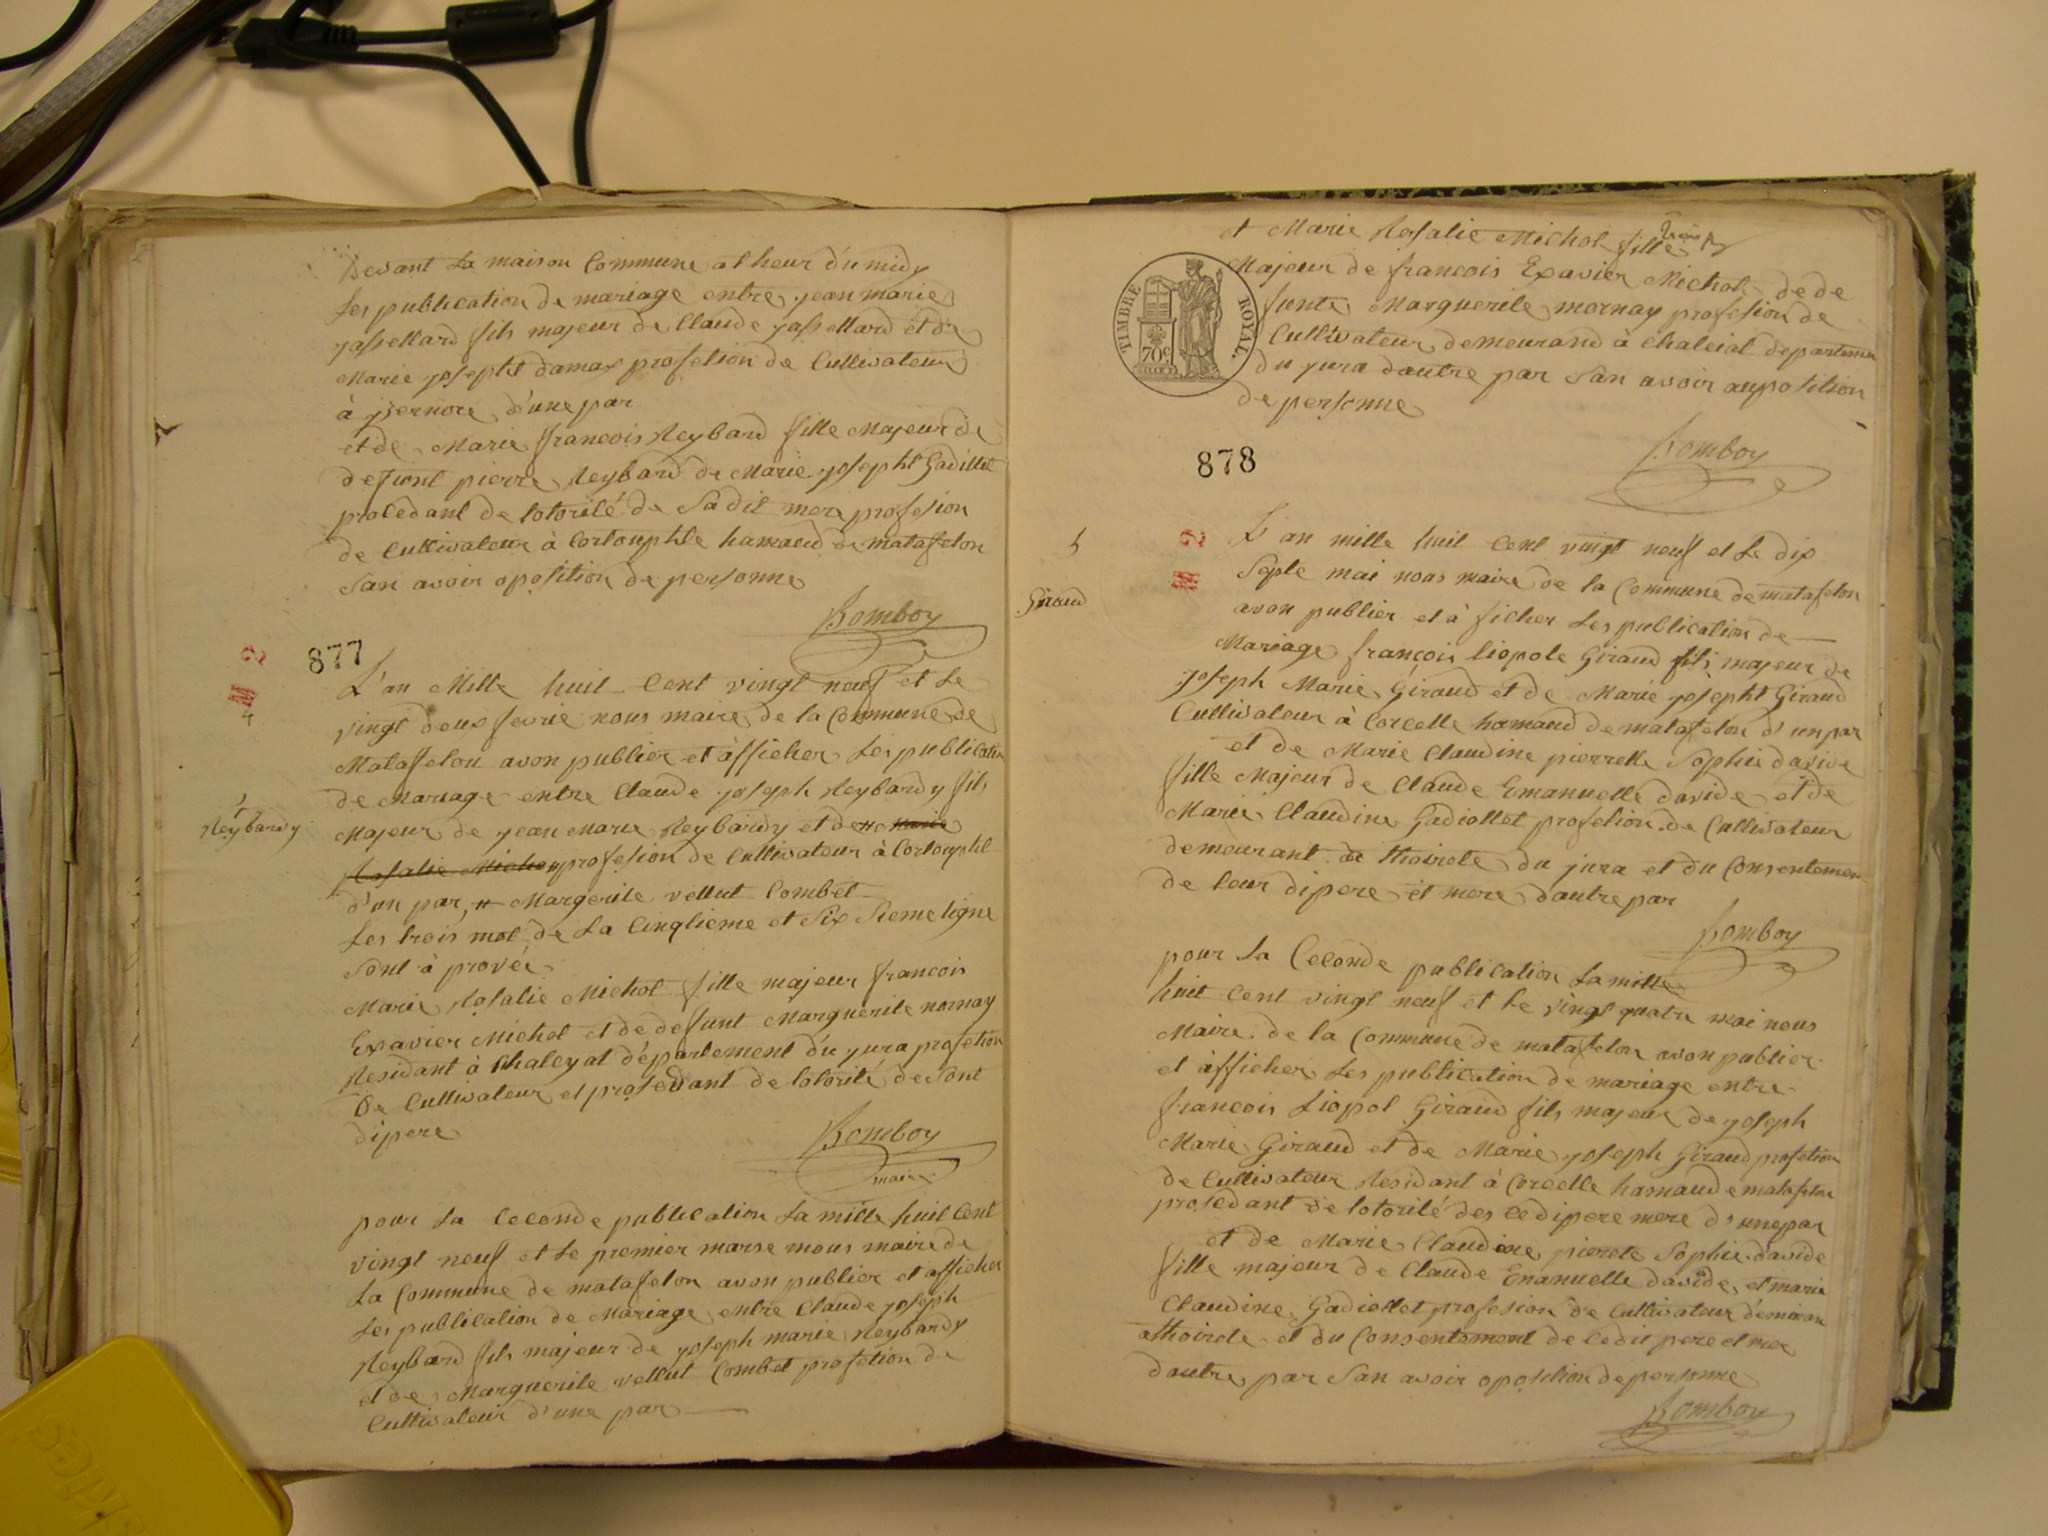 Devant la maison Commune at heur du midy
Les publication de mariage entre jean marie
fils majeur de Claude et de
Marie josepht damas profetion de Cullivateur
à jzernore d'une par
et de Marie francois Reybard fille Majeur de
defiont pierre Reybard de Marie josepht Gadillet
procedant de lotorilé de Sadit mere profesion
de Cullivateur à Cortouphle hamaud de matafelon
San avoir oposition de personne
Bomboy
877
L'an Mille huil Cent vingt neuf et Le
vingt deux fevrie nous maire de la Commune de
Matafelon avon publier et àfficher Les publication
de Mariage entre Claude joseph Reybardy fils
Majeur de jean Marie Reybardy et de
profesion de Cullivateur à Cortouphle
d'un par, # Margerite vellut Combet
Les trois mot de La Cinqlieme et Six Sieme ligne
Sont à prové
Marie Rosalie Michol fille majeur francois
Exavier Michol et de defsunt Marguerite nornay
Residant à Chaleyat département du jura profetion
De Cullivateur et profedant de lotorité de Sont
dipere
Bomboy
maire
4
Reybardy
pour La Ceconde publication La mille huil Cent
vingt neuf et Le premier marse mous maire de
La Commune de matafelon avon publier et afficher
Les publication de Mariage entre Claude joseph
Reybard fils majeur de joseph marie Reybardy
et de Marguerite vellut Combet profetion de
Cultivateur d'une par
et Marie Rosalie Michol fille
Majeur de francois Exavier Michol de de
funte Marguerite mornay profesion de
Cullivateur demeurand à Chaleiat departeme
du jura dautre par San avoir auposition
de personne
TIMBRE ROYAL.
70c
Bomboy
878
5
Giraud
L'an mille huil Cent vingt neuf et Le dix
Septe mai nous maire de la Commune de matafelon
avon publier et à ficher Les publication de
Mariage françois liopole Giraud fils majeur de
joseph Marie Giraud et de Marie josepht Giraud
Cullivateur à Corcelle hamaud de matafelon d'un par
et de Marie Claudine pierrette Sophie davide
fille Majeur de Claude Emanuelle davide et de
Marie Claudine Gadiollet profetion de Cullivateur
demeurant a thoirete du jura et du Consentemen
de leur dipere et mere dautre par
Bomboy
pour La Ceconde publication La mille
huit Cent vingt neuf et Le vingt quatre mai nous
Maire de la Commune de matafelon avon publier
et àfficher Les publication de mariage entre
francois Liopol Giraud fils majeur de joseph
Marie Giraud et de Marie joseph Giraud profetion
de Cullivateur Residant à Corcelle hamaude matafelon
profedant de lotorilé des Cedipere mere d'unepar
et de Marie Claudine pierete Sophie davide
fille majeur de Claude Emanuelle davide, et marie
Claudine Gadiollet profesion de Cullivateur
athoirete et du Consentement de Cedit pere et mer
dautre par San avoir oposilion de personne
Bomboy